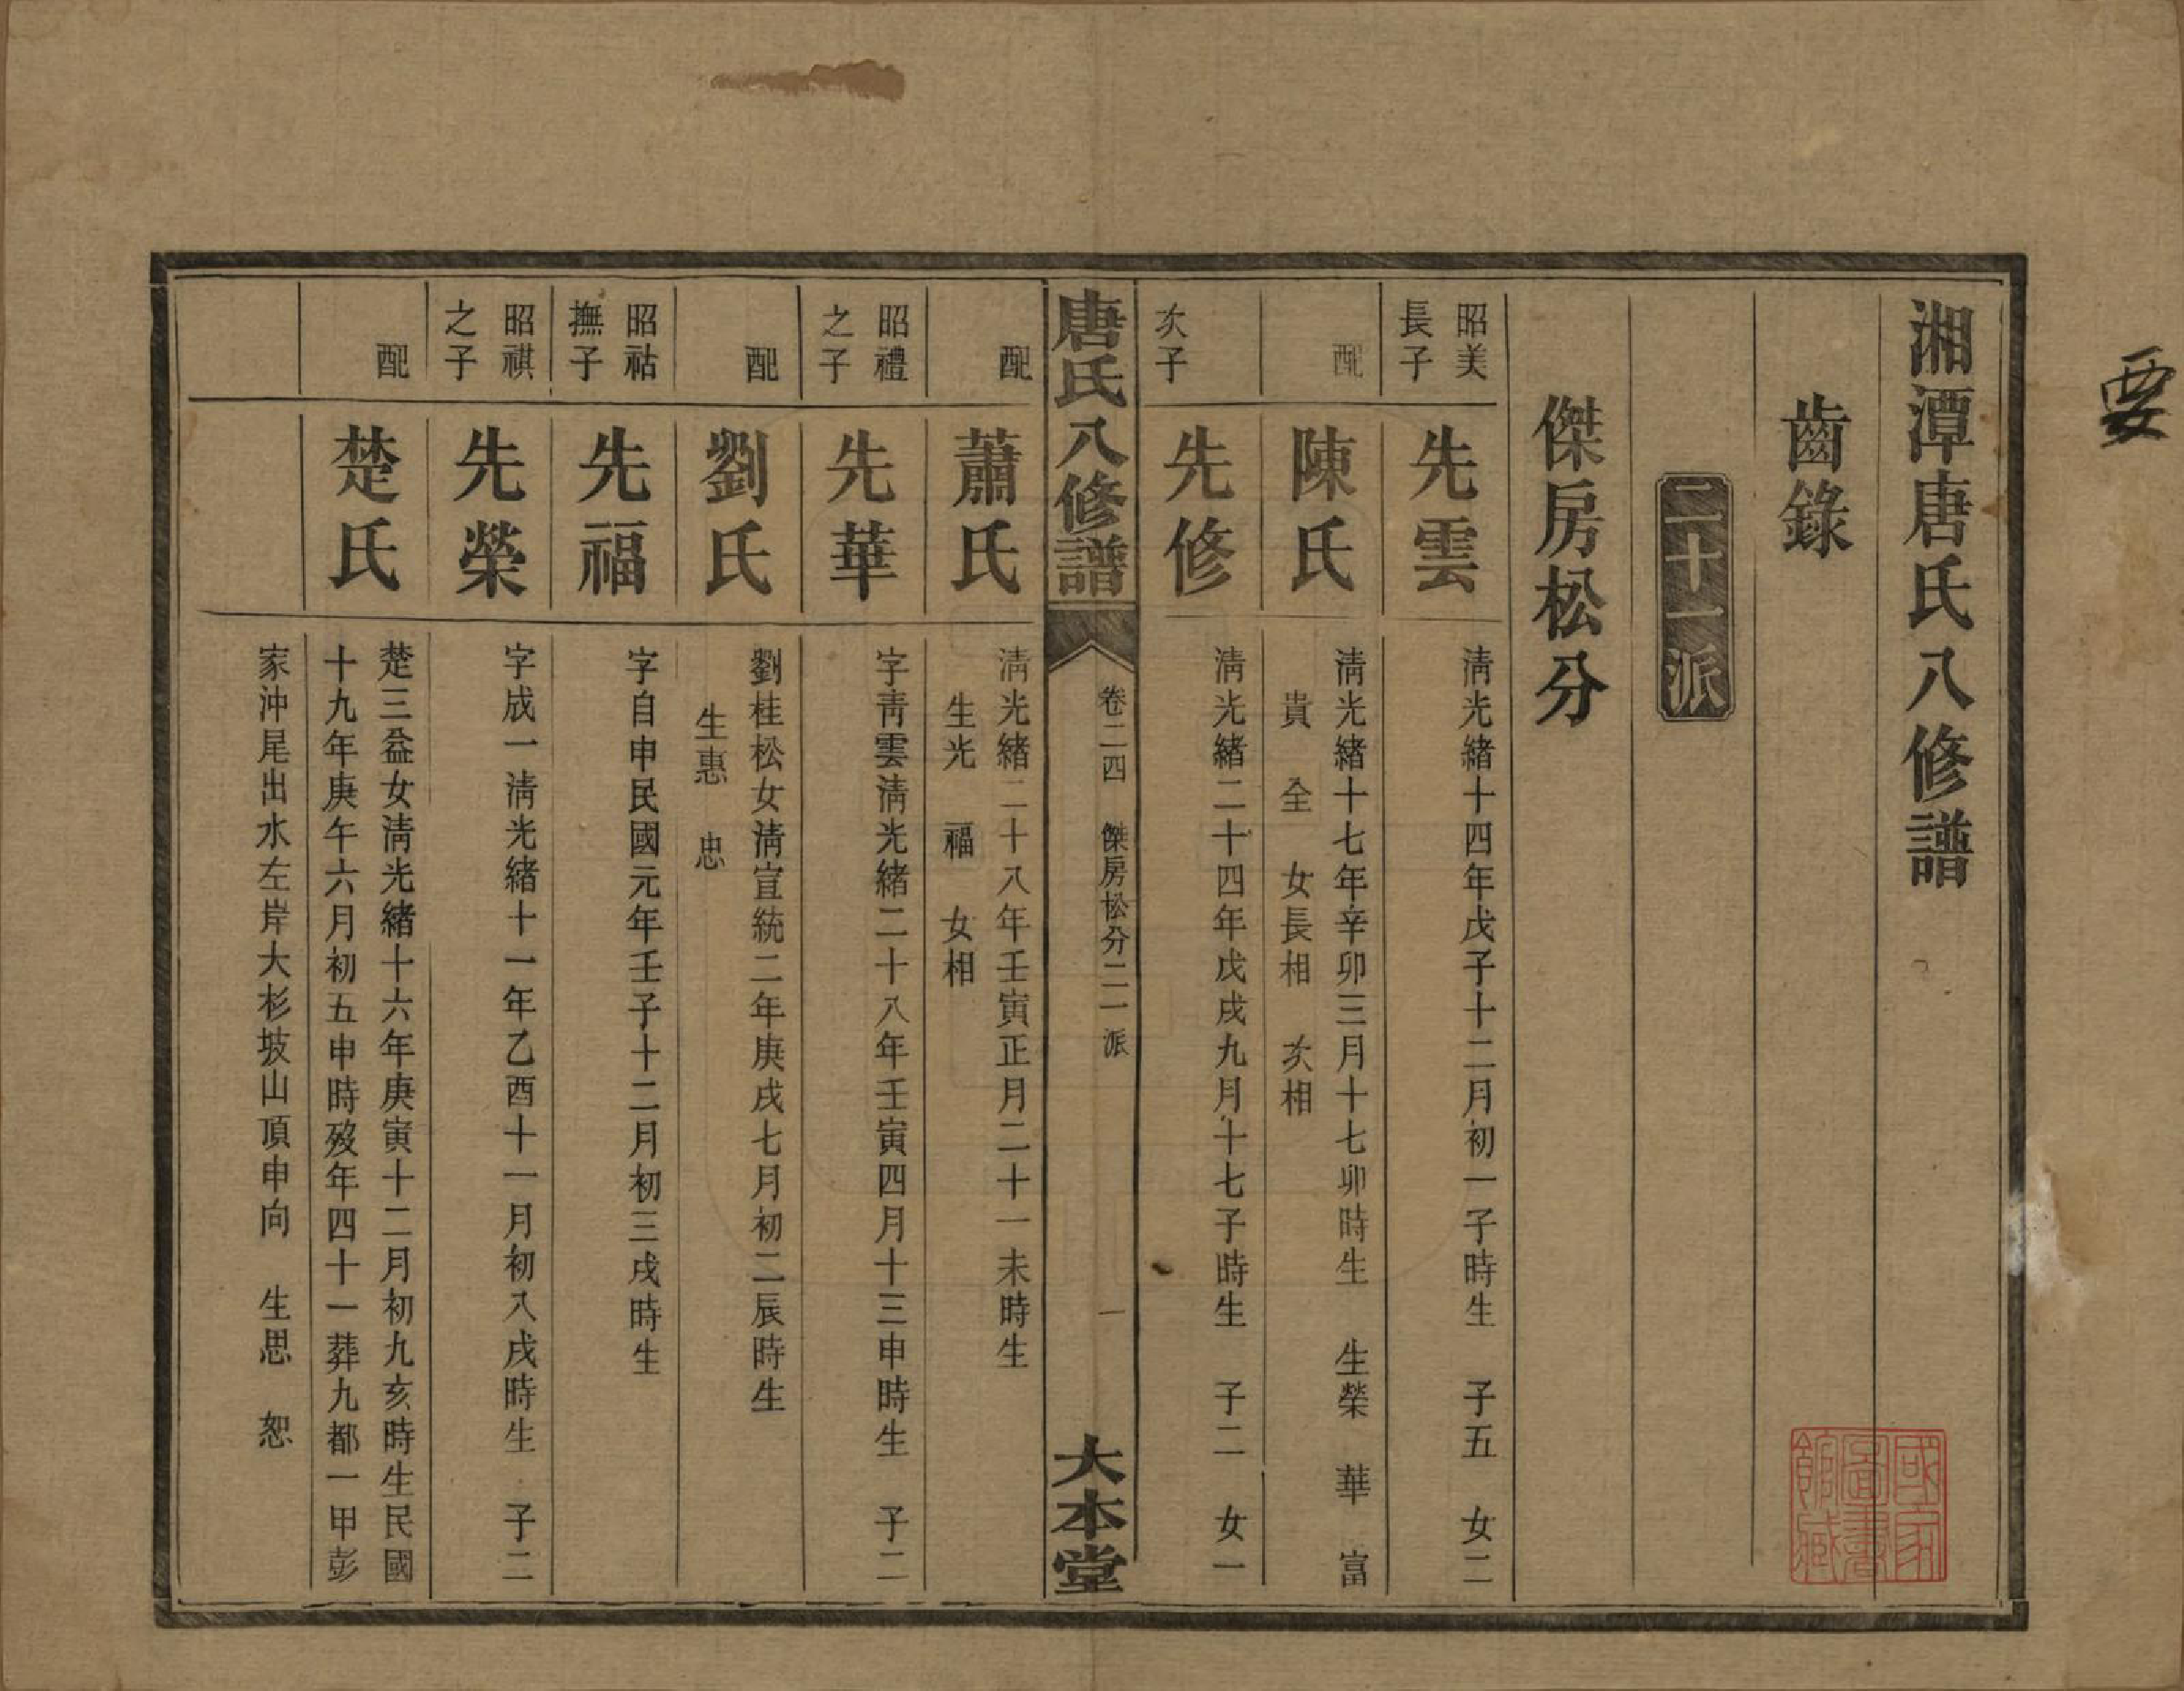 要
湘潭唐氏八修譜
齒錄
二十一派
傑房松分
昭美
長子
先雲
淸光緒十四年戊子十二月初一子時生 子五 女二
配
陳氏
淸光緒十七年辛卯三月十七卯時生 生榮 華 富
貴 全 女長相 次相
次子
先修
淸光緒二十四年戊戌九月十七子時生 子二 女一
唐氏八修譜
卷二四 傑房松分二一派
一
大本堂
配
蕭氏
淸光緒二十八年壬寅正月二十一未時生
生光 福 女相
昭禮
之子
先華
字靑雲淸光緒二十八年壬寅四月十三申時生 子二
配
劉氏
劉桂松女淸宣統二年庚戌七月初二辰時生
生惠 忠
昭祜
撫子
先福
字自申民國元年壬子十二月初三戌時生
昭祺
之子
先榮
字成一淸光緒十一年乙酉十一月初八戌時生 子二
配
楚氏
楚三益女淸光緒十六年庚寅十二月初九亥時生民國
十九年庚午六月初五申時歿年四十一葬九都一甲彭
家沖尾出水左岸大杉坡山頂申向 生思 恕
國家
圖書
館藏